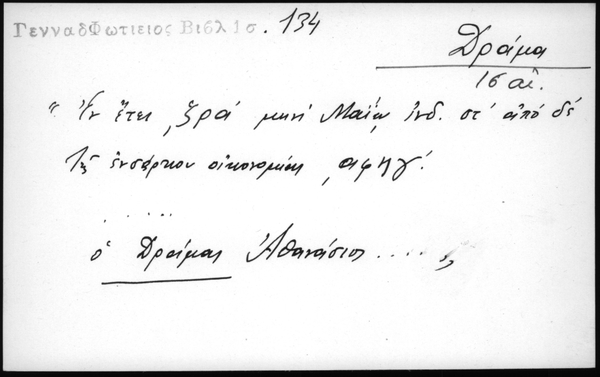 Γενναδ Φωτιειος Βιβλ 1σ. 134
Δράμα
16 αἰ.
"Ἐν ἔτει ͵ζρα' μηνὶ Μαΐῳ ἰνδ. στ' ἀπό δέ
τῆς ἐνσάρκου οἰκονομίας ͵αφηγ'.
.....
ὁ Δράμας Ἀθανάσιος ....,